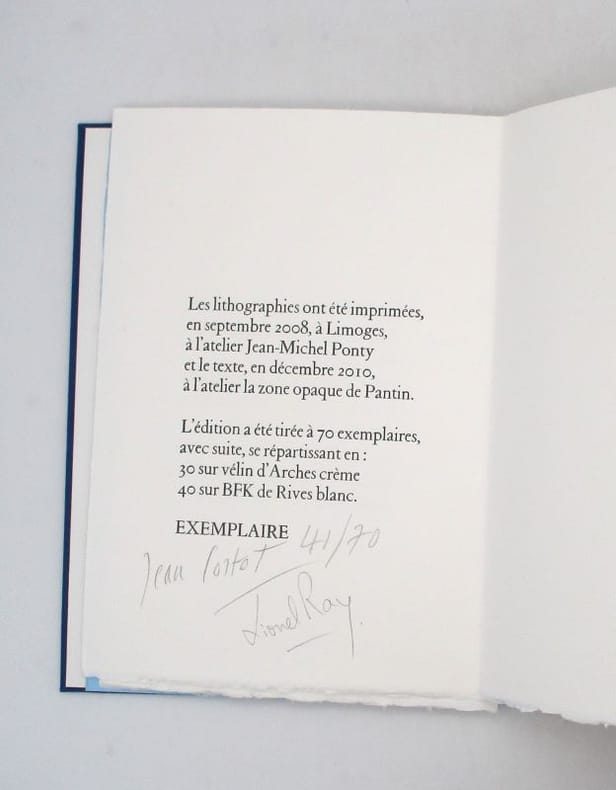 Les lithographies ont été imprimées,
en septembre 2008, à Limoges,
à l'atelier Jean-Michel Ponty
et le texte, en décembre 2010,
à l'atelier la zone opaque de Pantin.
L'édition a été tirée à 70 exemplaires,
avec suite, se répartissant en :
30 sur vélin d'Arches crème
40 sur BFK de Rives blanc.
EXEMPLAIRE 41/70
Jean
Lionel Ray.